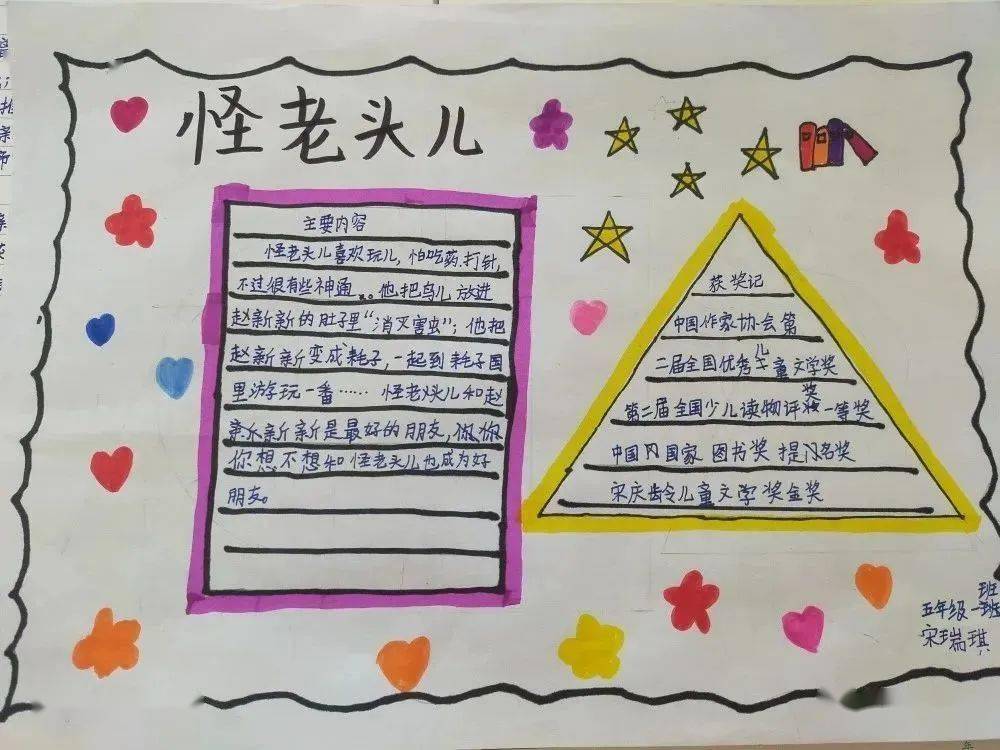 怪老头儿
主要内容
怪老头儿喜欢玩儿,怕吃药.打针,
不过很有些神通。。他把鸟儿放进
赵新新的肚子里“消灭害虫”;他把
赵新新变成耗子,一起到耗子国
里游玩一番…… 怪老头儿和赵
新新是最好的朋友,
你想不想和怪老头儿也成为好
朋友。
获奖记
中国作家协会第
二届全国优秀儿童文学奖
第二届全国少儿读物评奖一等奖
中国国家图书奖提名奖
宋庆龄儿童文学奖金奖
五年级一班
宋瑞琪